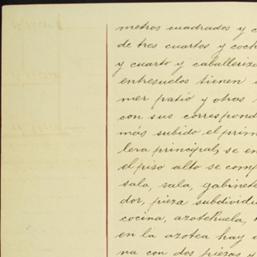 metros cuadrados y c
de tres cuartos y coch
y cuarto y caballeriza
entresuelos tienen
mer patio y otras
con sus correspond
más subido el prim
lera principal, se en
el piso alto se comp
sala, sala, gabinete
dor, pieza subdividi
cocina, azotehuela,
en la azotea hay
na con dos piezas y